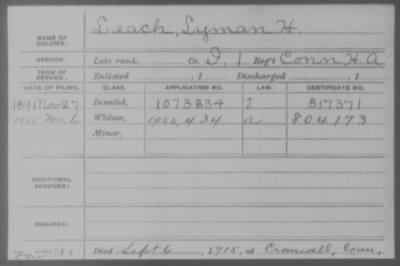 NAME OF SOLDIER: Leach, Lyman H.
SERVICE: Late rank, Co. I, 1 Reg't Conn H. A.
TERM OF SERVICE: Enlisted , 1 Discharged , 1
DATE OF FILING. CLASS. APPLICATION NO. LAW. CERTIFICATE NO.
1891 Nov 27 Invalid, 1073834 J 817371
1915 Nov. 6 Widow, 1055,434 a 804173
Minor,
ADDITIONAL SERVICES:
REMARKS:
Died Sept 6, 1915, at Cromwell, Conn.